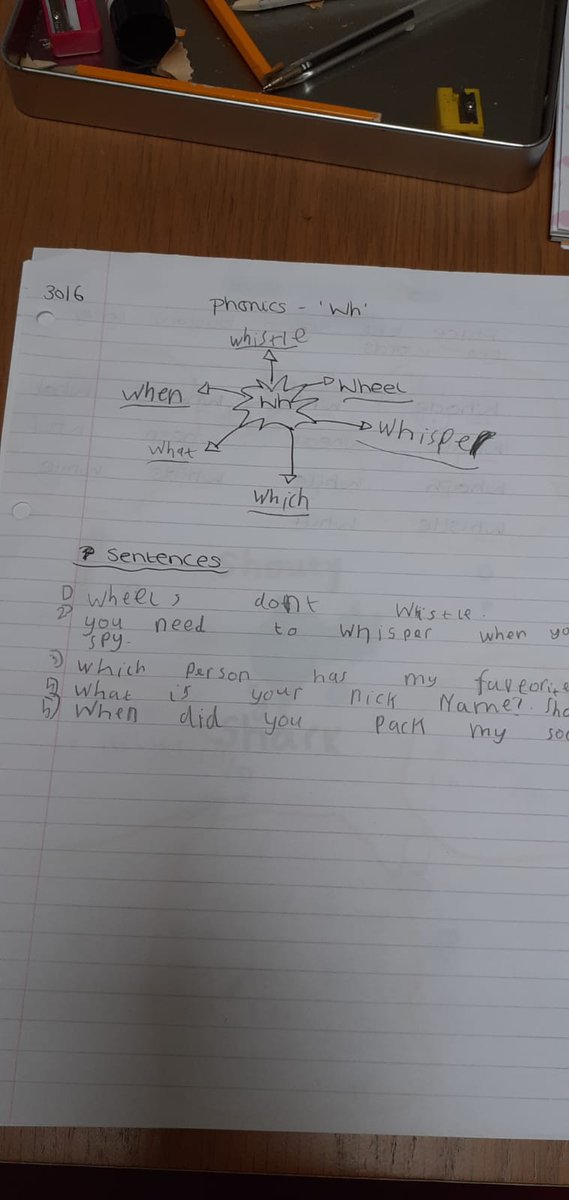 30/6
Phonics - 'Wh'
whistle
when
Wheel
Wh
whisper
what
which
Sentences
1) wheels dont whistle.
2) you need to whisper when yo
spy.
3) which person has my faveorite
4) what is your nick Name? Sho
5) When did you pack my soc
Shark